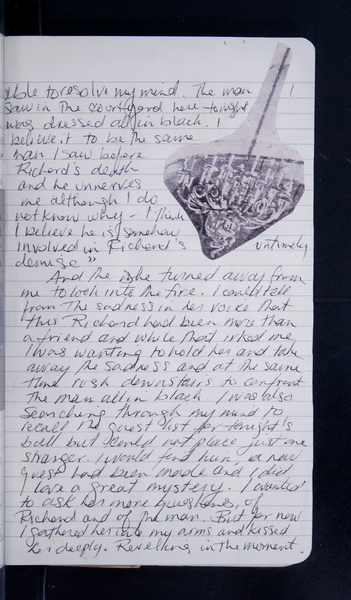 able to resolve my mind. The man
I saw in the courtyard here tonight
was dressed all in black. I
believe it to be the same
man I saw before
Richard's death
and he unnerves
me although I do
not know why - I think
I believe he is somehow
involved in Richard's untimely
demise"
And the she turned away from
me to look into the fire. I could tell
from the sadness in her voice that
this Richard had been more than
a friend and while that irked me
I was wanting to hold her and take
away the sadness and at the same
time rush downstairs to confront
the man all in black. I was also
searching through my mind to
recall the guest list for tonight's
ball but could not place just one
stranger. I would find him. a new
quest had been made and I did
love a great mystery. I wanted
to ask her more questions, of
Richard and of the man. But for now
I gathered her into my arms and kissed
her deeply. Revelling in the moment.